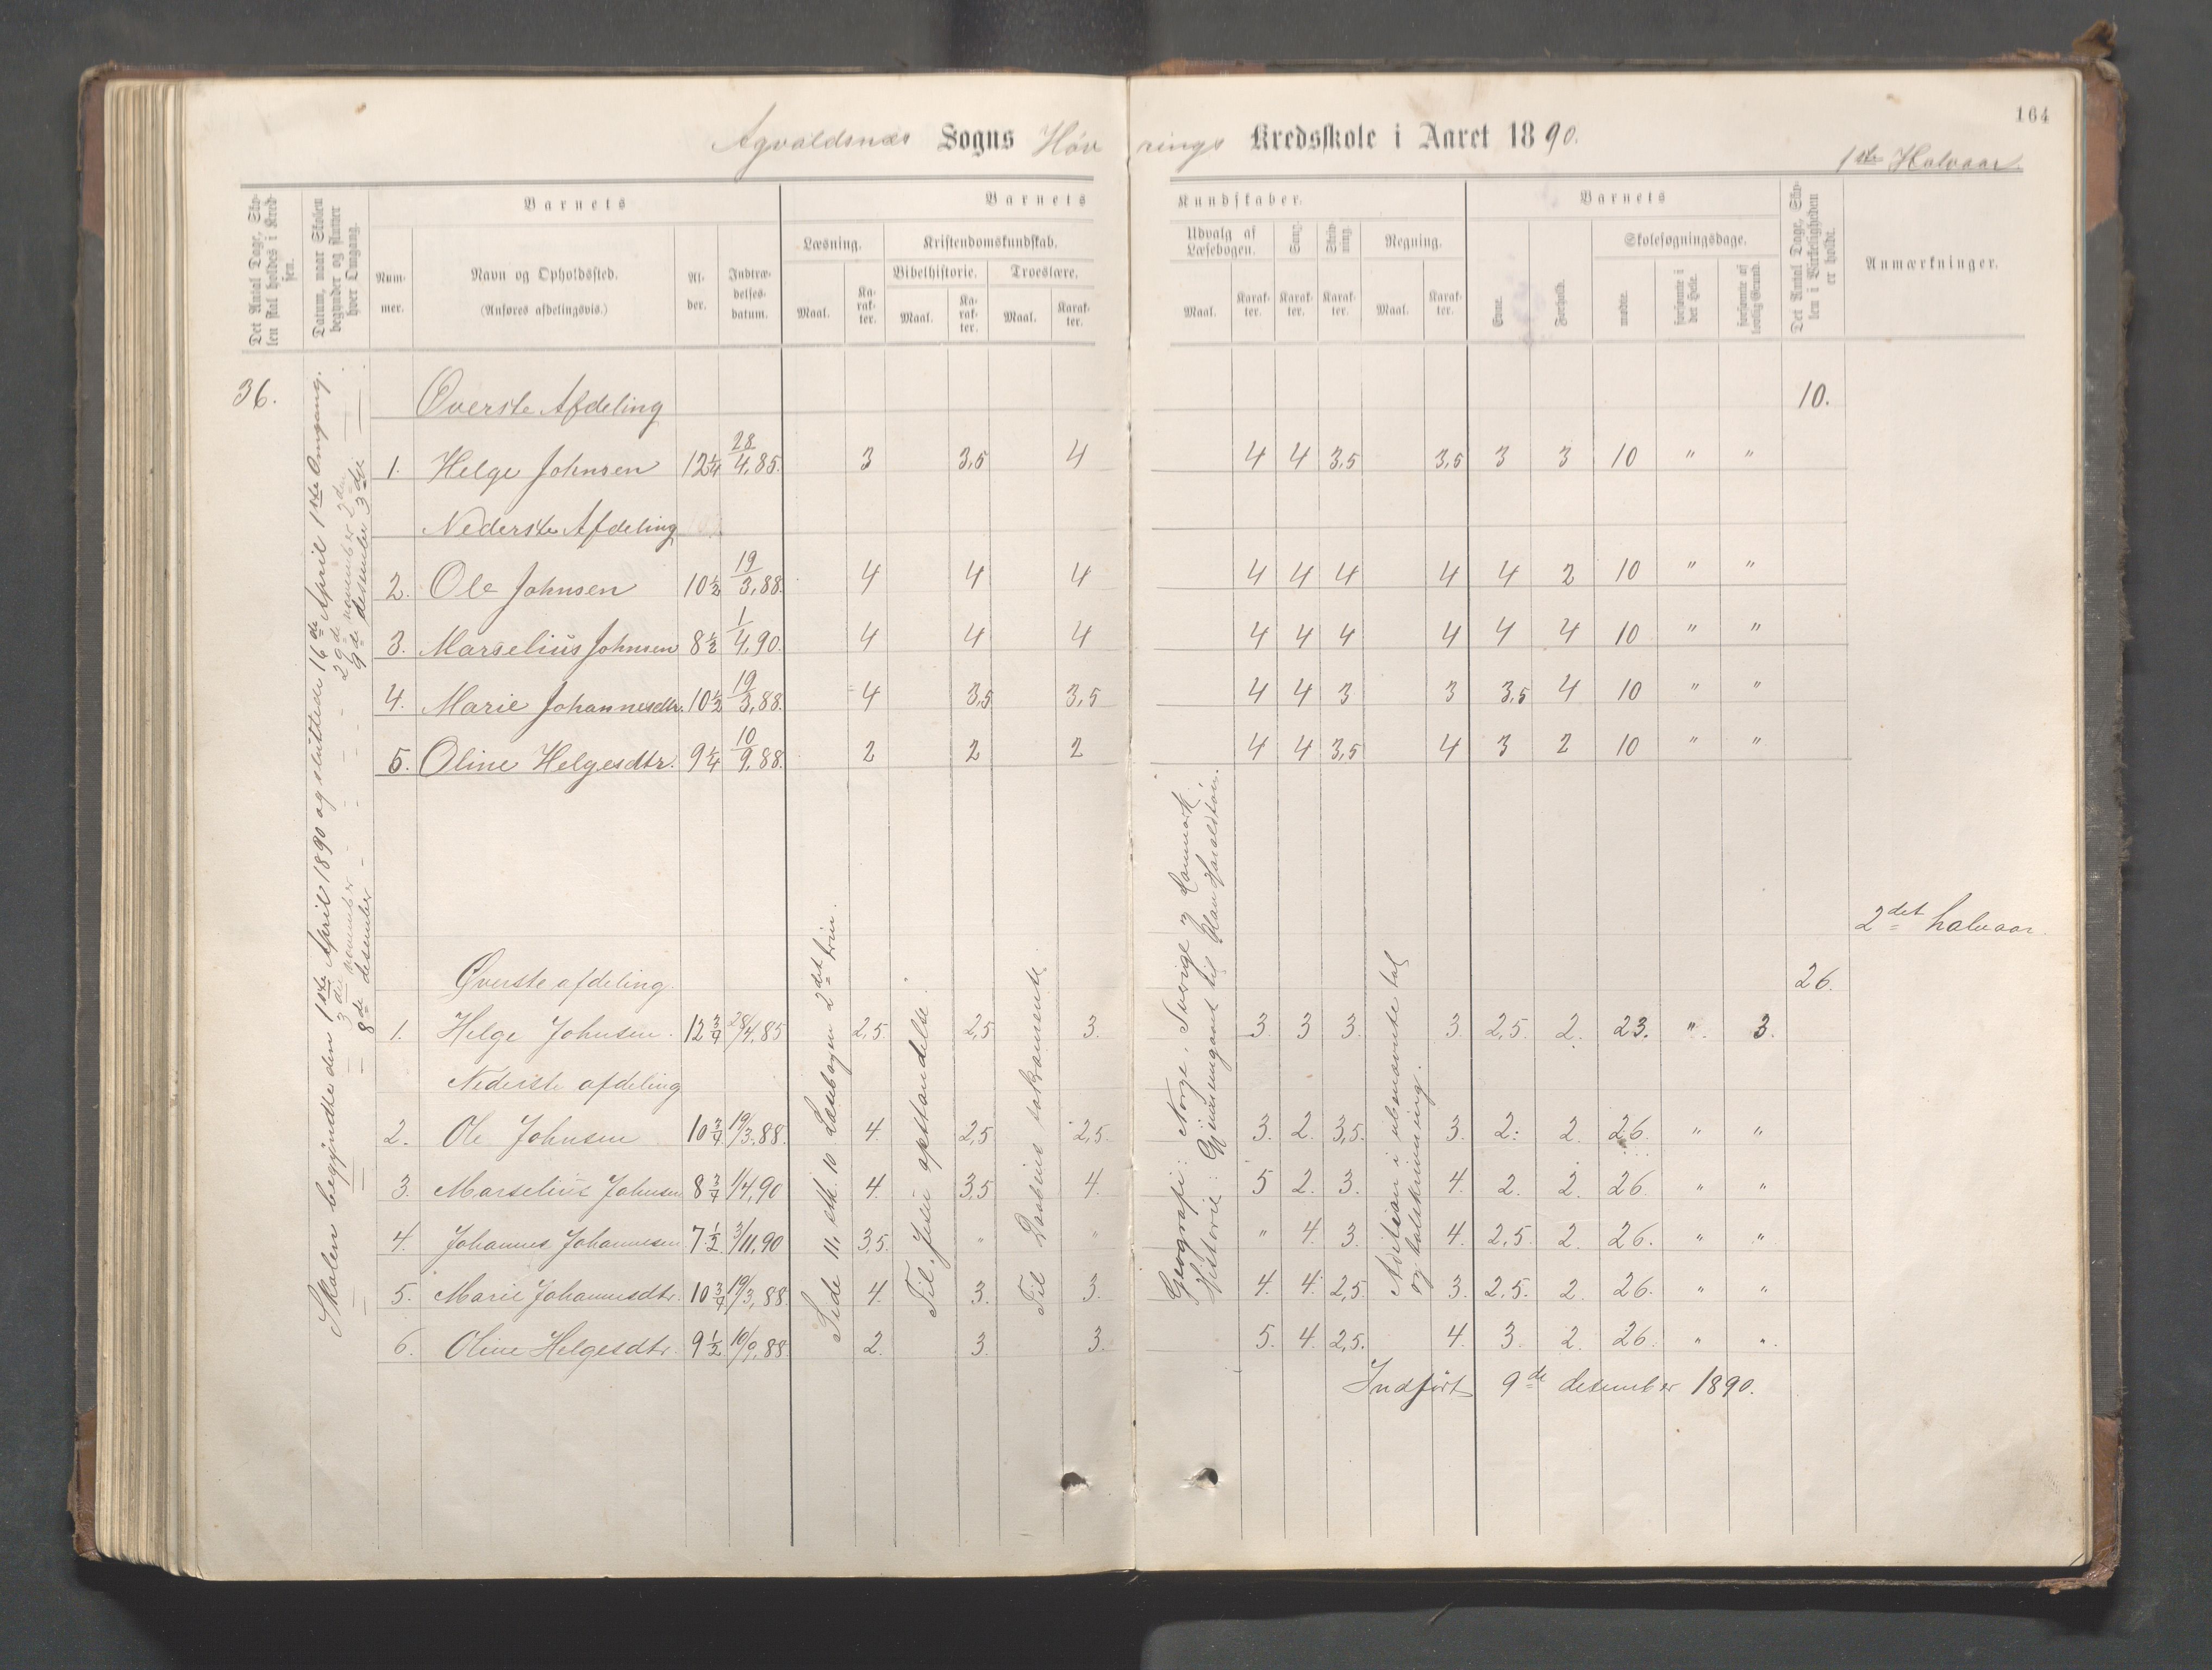 164
Agvaldsnæs Sogns Høvrings Kredsskole i Aaret 1890.
1ste Halvaar.
Det Antal Dage, Skolen skal holdes i Kredsen.
Datum, naar Skolen begynder og slutter hver Omgang.
Barnets
Nummer.
Navn og Opholdssted.
(Anføres afdelingsvis.)
Alder.
Indtrædelsesdatum.
Barnets Kundskaber.
Læsning.
Maal.
Karakter.
Kristendomskundskab.
Bibelhistorie.
Maal.
Karakter.
Troeslære.
Maal.
Karakter.
Udvalg af Læsebogen.
Maal.
Karakter.
Sang.
Karakter.
Skrivning.
Karakter.
Regning.
Maal.
Karakter.
Barnets
Evne.
Forhold.
Skolesøgningsdage.
mødte.
forsømte i det Hele.
forsømte af lovlig Grund.
Det Antal Dage, Skolen i Virkeligheden er holdt.
Anmærkninger.
36.
Skolen begyndte den 1ste April 1890 og sluttede 16de April 1ste Omgang.
— 3die november — 29de november 2den —
— 8de desember — 9de desember 3die —
Øverste Afdeling 10.
1. Helge Johnsen 12 1/4 28/4,85. 3 3,5 4 4 4 3,5 3,5 3 3 10 " "
Nederste Afdeling
2. Ole Johnsen 10 1/2 19/3,88. 4 4 4 4 4 4 4 4 2 10 " "
3. Marselius Johnsen 8 1/2 1/4,90. 4 4 4 4 4 4 4 4 4 10 " "
4. Marie Johannesdtr. 10 1/2 19/3,88. 4 3,5 3,5 4 4 3 3 3,5 4 10 " "
5. Oline Helgesdtr. 9 1/4 10/9,88. 2 2 2 4 4 3,5 4 3 2 10 " "
2det halvaar.
Øverste afdeling. 26.
1. Helge Johnsen. 12 3/4 28/4,85 2,5. 2,5 3. 3. 3 3. 3. 2,5. 2. 23. ". 3.
Nederste afdeling
2. Ole Johnsen 10 3/4 19/3,88. 4. 2,5 2,5. 3. 2. 3,5. 3. 2. 2. 26. " "
3. Marselius Johnsen 8 3/4 1/4,90 4. 3,5 4. 5 2. 3. 4. 2. 2. 26. " "
4. Johannes Johannesen 7 1/2 3/11,90 3,5. " " " 4. 3. 4. 2,5. 2. 26. " "
5. Marie Johannesdtr. 10 3/4 19/3,88. 4. 3. 3. 4. 4. 2,5. 3. 2,5. 2. 26. " "
6. Oline Helgesdtr. 9 1/2 10/9,88. 2. 3. 3. 5. 4. 2,5. 4. 3. 2. 26. " ".
Side 11, stk. 10 Læsebogen 2det trin.
Til Jesu opstandelse.
Til Daabens sakramente
Geografi: Norge, Sverige og Danmark.
Historie: Gjennemgaaet til Olav Haraldsøn.
Adition i ubenævnte tal
og talskrivning.
Indført 9de desember 1890.